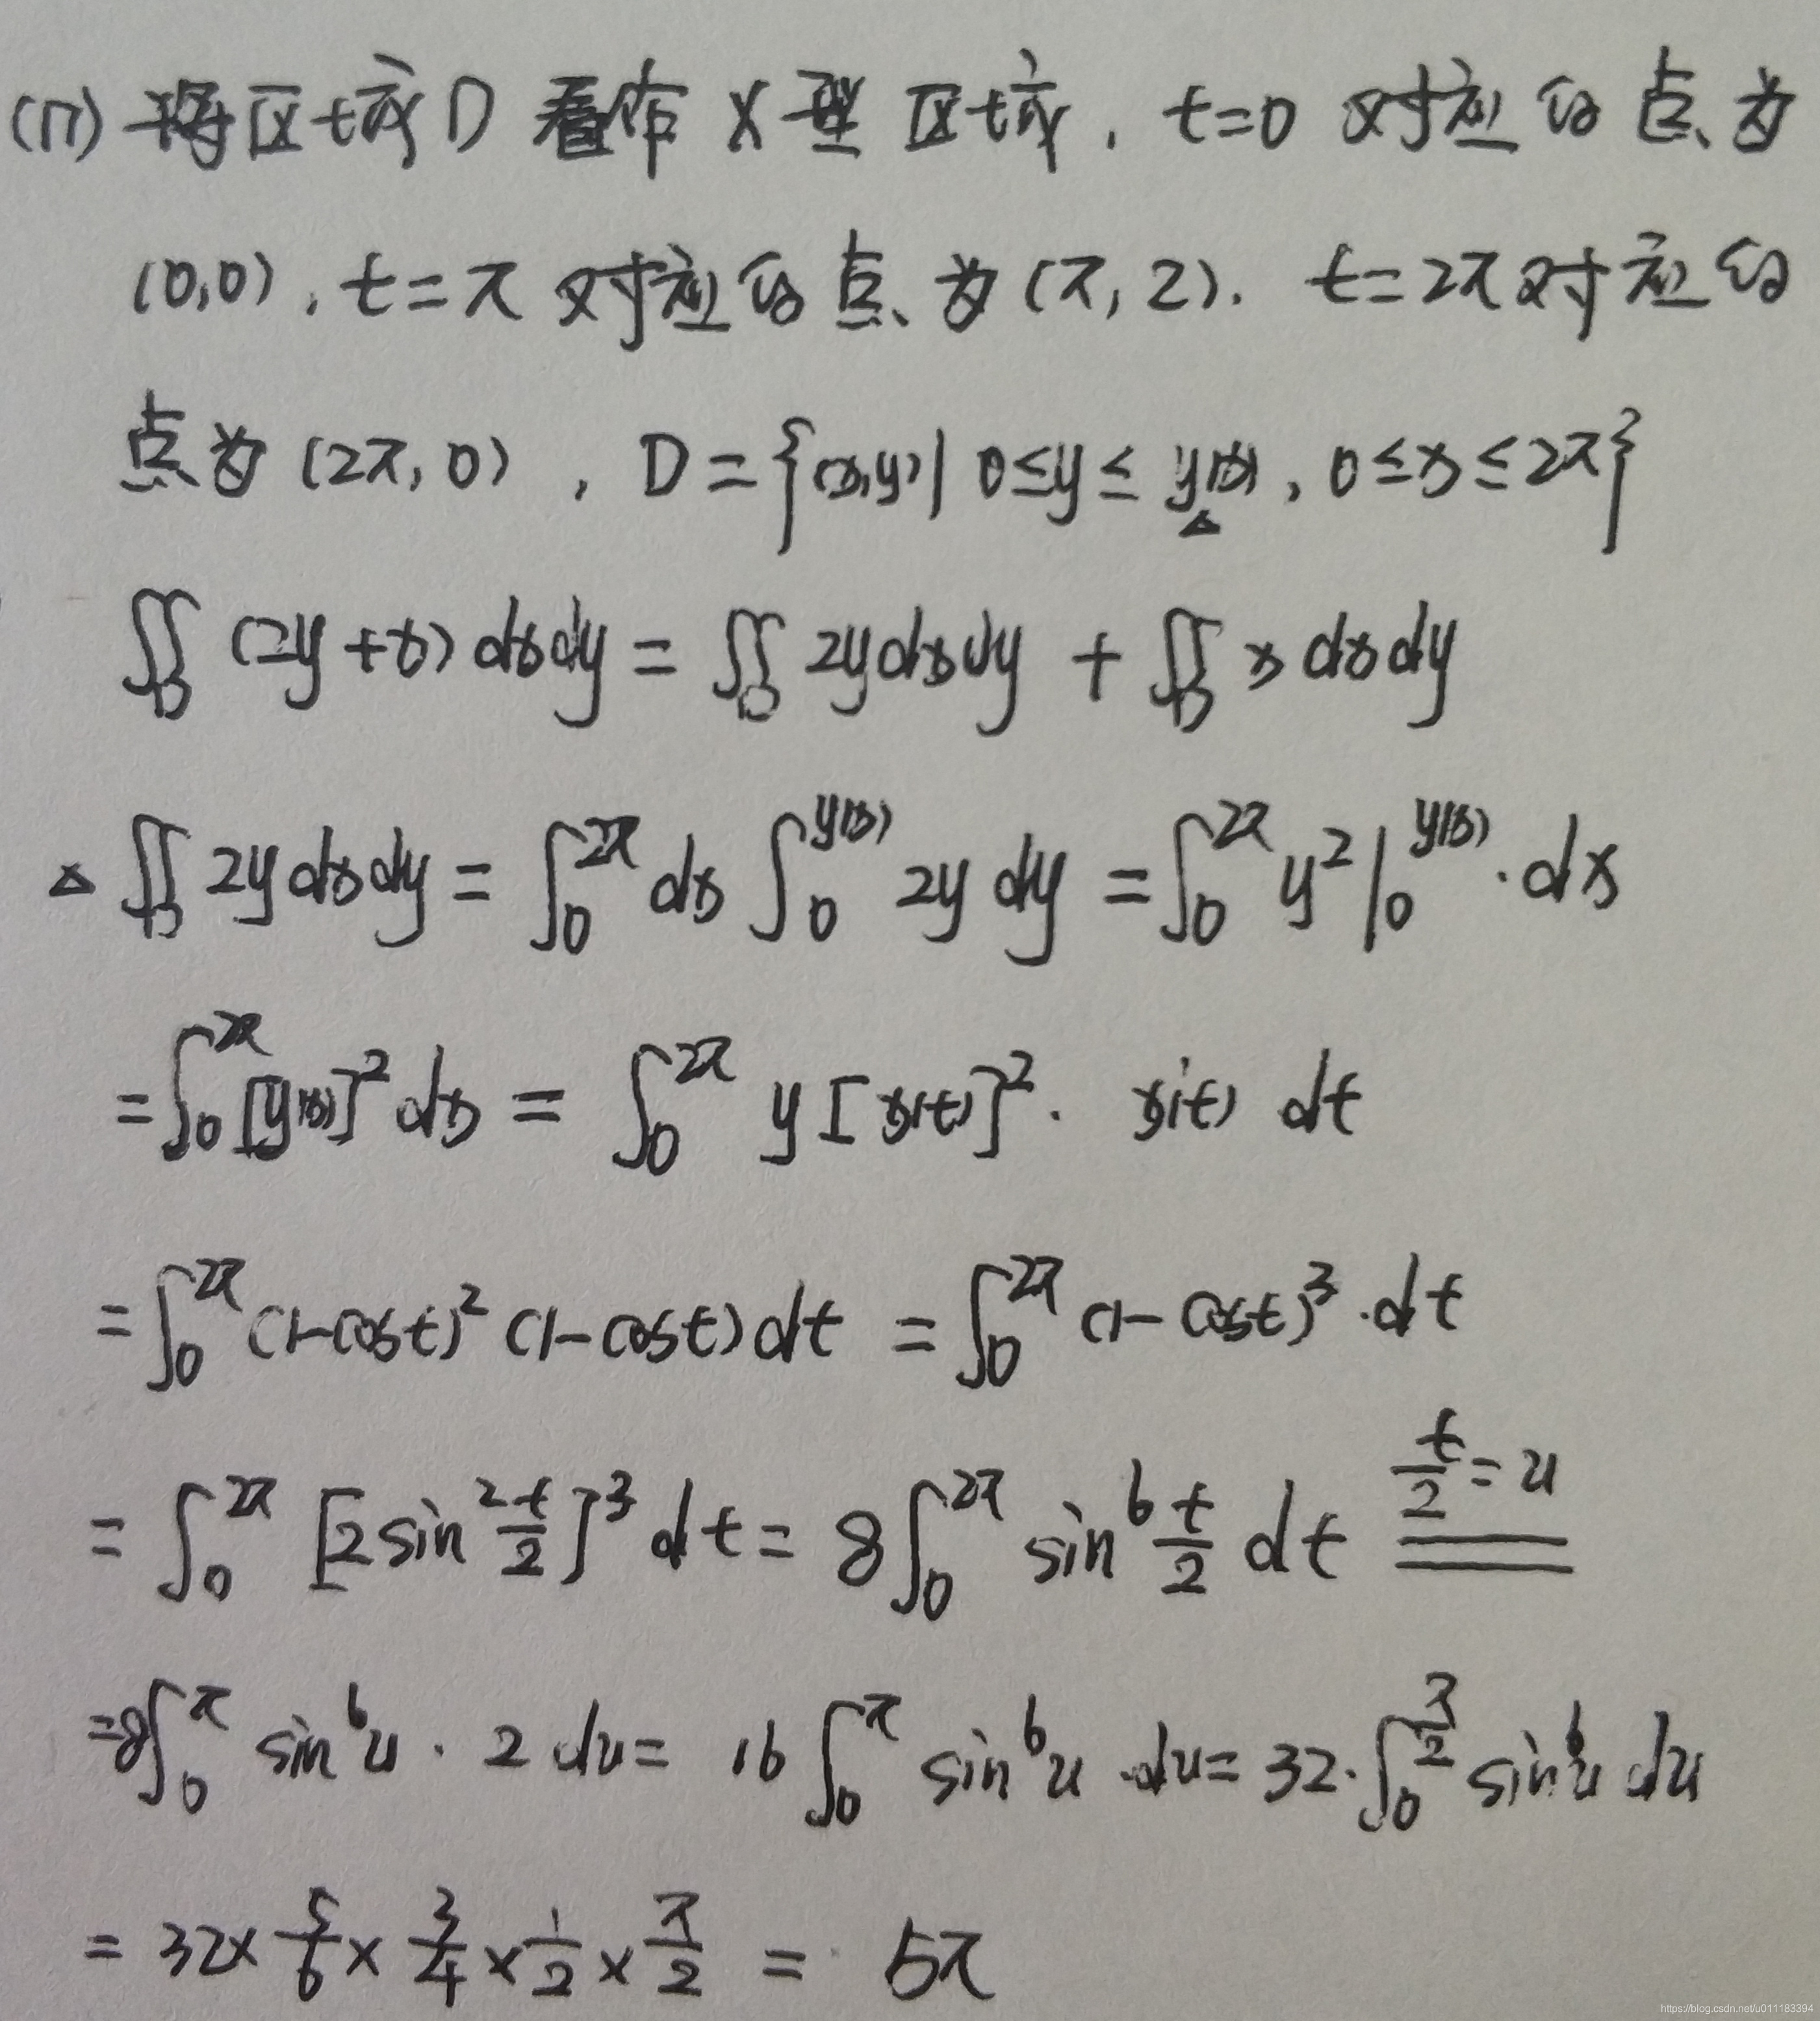 (II) 将区域D 看作 X 型 区域, t=0 对应的点为
(0,0), t=π 对应的点为(π,2). t=2π对应的
点为(2π,0), D={(x,y)| 0≤y≤y(x), 0≤x≤2π}
∬_D (2y+x) dxdy = ∬_D 2ydxdy + ∬_D x dxdy
△ ∬_D 2ydxdy = ∫_0^{2π} dx ∫_0^{y(x)} 2y dy = ∫_0^{2π} y^2 |_0^{y(x)} · dx
= ∫_0^{2π} [y(x)]^2 dx = ∫_0^{2π} y[x(t)]^2 · x'(t) dt
= ∫_0^{2π} (1-cost)^2 (1-cost) dt = ∫_0^{2π} (1-cost)^3 · dt
= ∫_0^{2π} [2sin^2 t/2]^3 dt = 8∫_0^{2π} sin^6 t/2 dt t/2=u
=8∫_0^π sin^6 u · 2 du = 16 ∫_0^π sin^6 u · du = 32 · ∫_0^{π/2} sin^6 u du
= 32 × 5/6 × 3/4 × 1/2 × π/2 = 5π
https://blog.csdn.net/u011183394